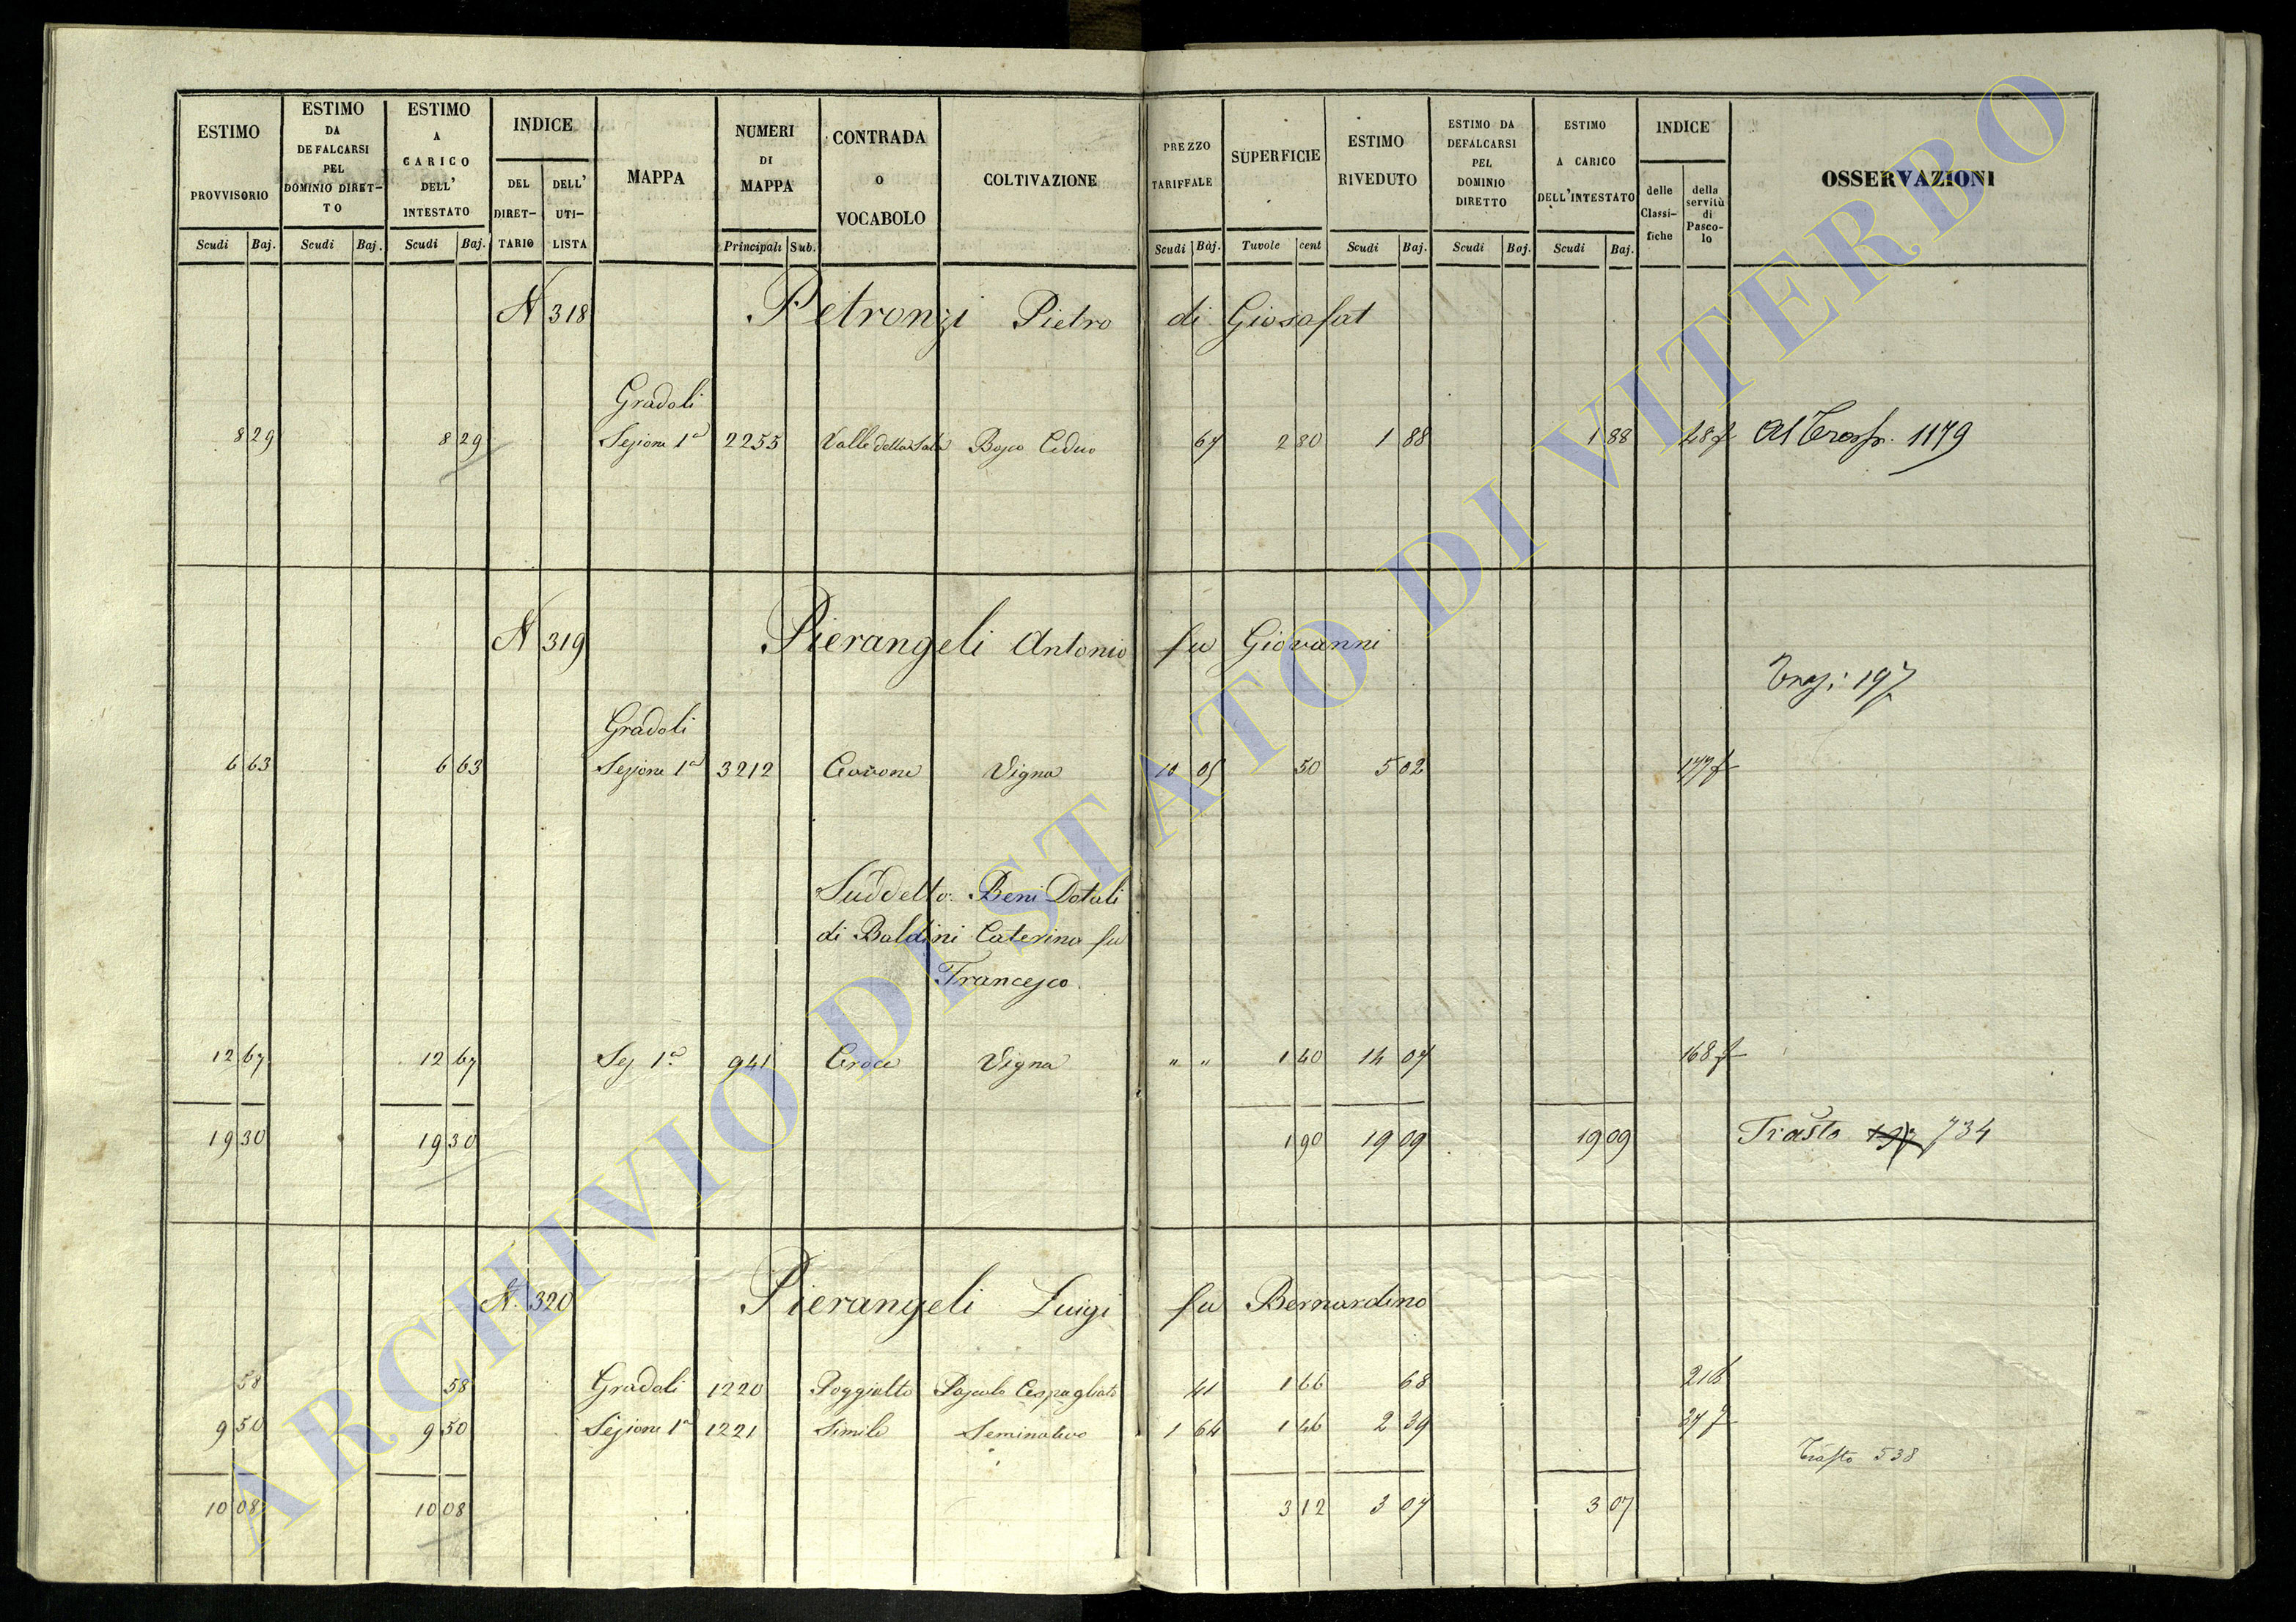 ESTIMO PROVVISORIO
ESTIMO DA DEFALCARSI PEL DOMINIO DIRET-TO
ESTIMO A CARICO DELL' INTESTATO
INDICE
DEL DIRET-TARIO
DELL' UTI-LISTA
MAPPA
NUMERI DI MAPPA
CONTRADA O VOCABOLO
COLTIVAZIONE
PREZZO TARIFFALE
SUPERFICIE
ESTIMO RIVEDUTO
ESTIMO DA DEFALCARSI PEL DOMINIO DIRETTO
ESTIMO A CARICO DELL'INTESTATO
INDICE
delle Classi-fiche
della servitù di Pasco-lo
OSSERVAZIONI
Scudi Baj. Scudi Baj. Scudi Baj. Principali Sub. Scudi Baj. Tavole cent Scudi Baj. Scudi Baj. Scudi Baj.
N 318 Petronzi Pietro di Giosafat
Gradoli
8 29 8 29 Sezione 1a 2255 Valle della Sala Bosco Ceduo 67 2 80 1 88 1 88 48 f Al Trasp. 1179
N 319 Pierangeli Antonio fu Giovanni
Tras: 197
Gradoli
6 63 6 63 Sezione 1a 3212 Vigna 10 05 50 5 02 177 f
Suddetto Beni Dotali
di Baldini Caterina fu
Francesco.
12 67 12 67 Sez 1a 941 Croce Vigna " " 1 40 14 07 168 f
19 30 19 30 1 90 19 09 19 09 Trasto 197 734
N. 320 Pierangeli Luigi fu Bernardino
58 58 Gradoli 1220 Poggialto Pascolo Cespugliato 41 1 66 68
9 50 9 50 Sezione 1a 1221 Simile Seminativo 1 64 1 46 2 39 37 f
Trasto 538
10 08 10 08 3 12 3 07 3 07
ARCHIVIO DI STATO DI VITERBO